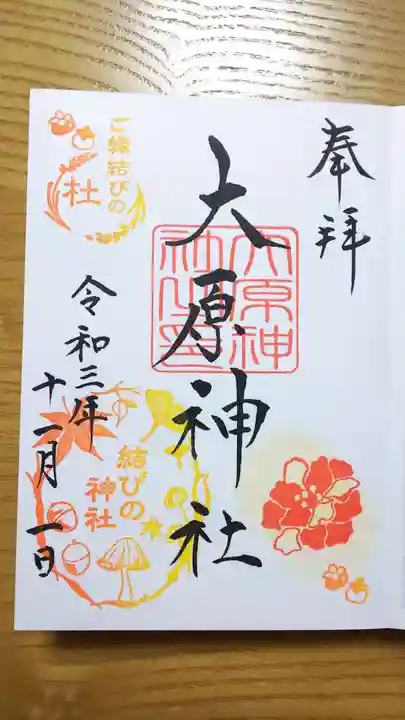 奉拝
大原神社
大原神社印
令和三年
十一月一日
ご縁結びの
杜
結びの
神社